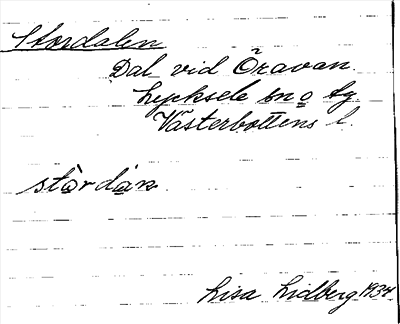 Stordalen
Dal vid Öravan.
Lycksele sn o tg.
Västerbottens l.
Lisa Lidberg 1934